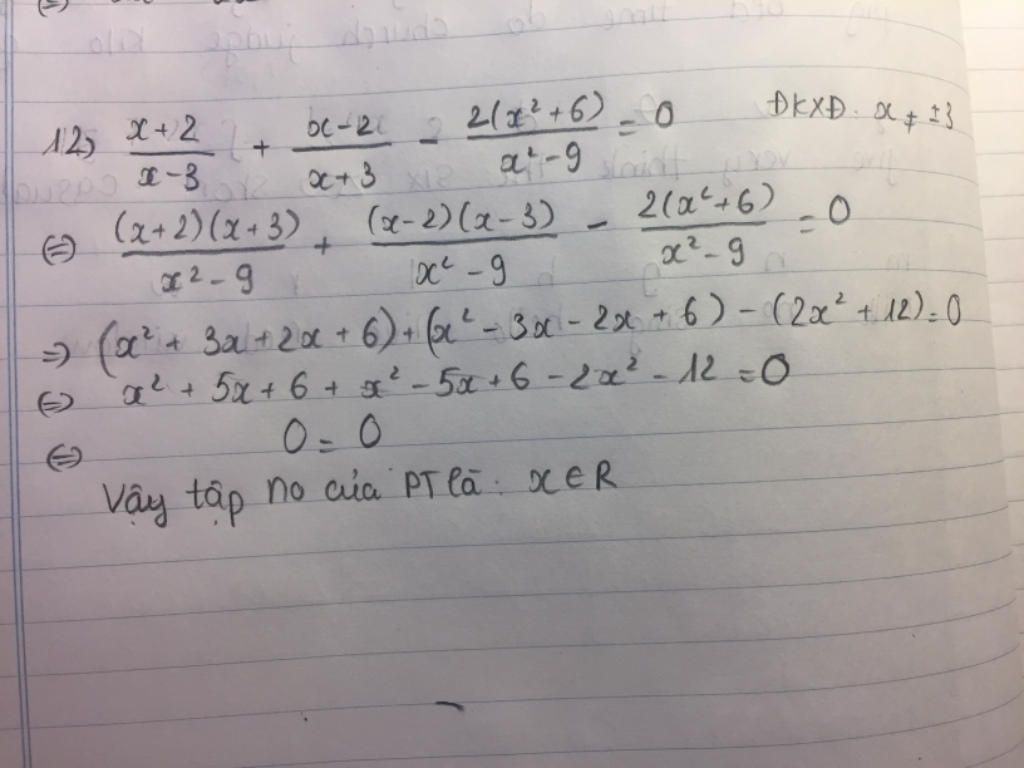 12) (x+2)/(x-3) + (x-2)/(x+3) - 2(x²+6)/(x²-9) = 0 ĐKXĐ: x ≠ ±3
⇔ (x+2)(x+3)/(x²-9) + (x-2)(x-3)/(x²-9) - 2(x²+6)/(x²-9) = 0
⇒ (x² + 3x + 2x + 6) + (x² - 3x - 2x + 6) - (2x² + 12) = 0
⇔ x² + 5x + 6 + x² - 5x + 6 - 2x² - 12 = 0
⇔ 0 = 0
Vậy tập no của PT là: x ∈ R